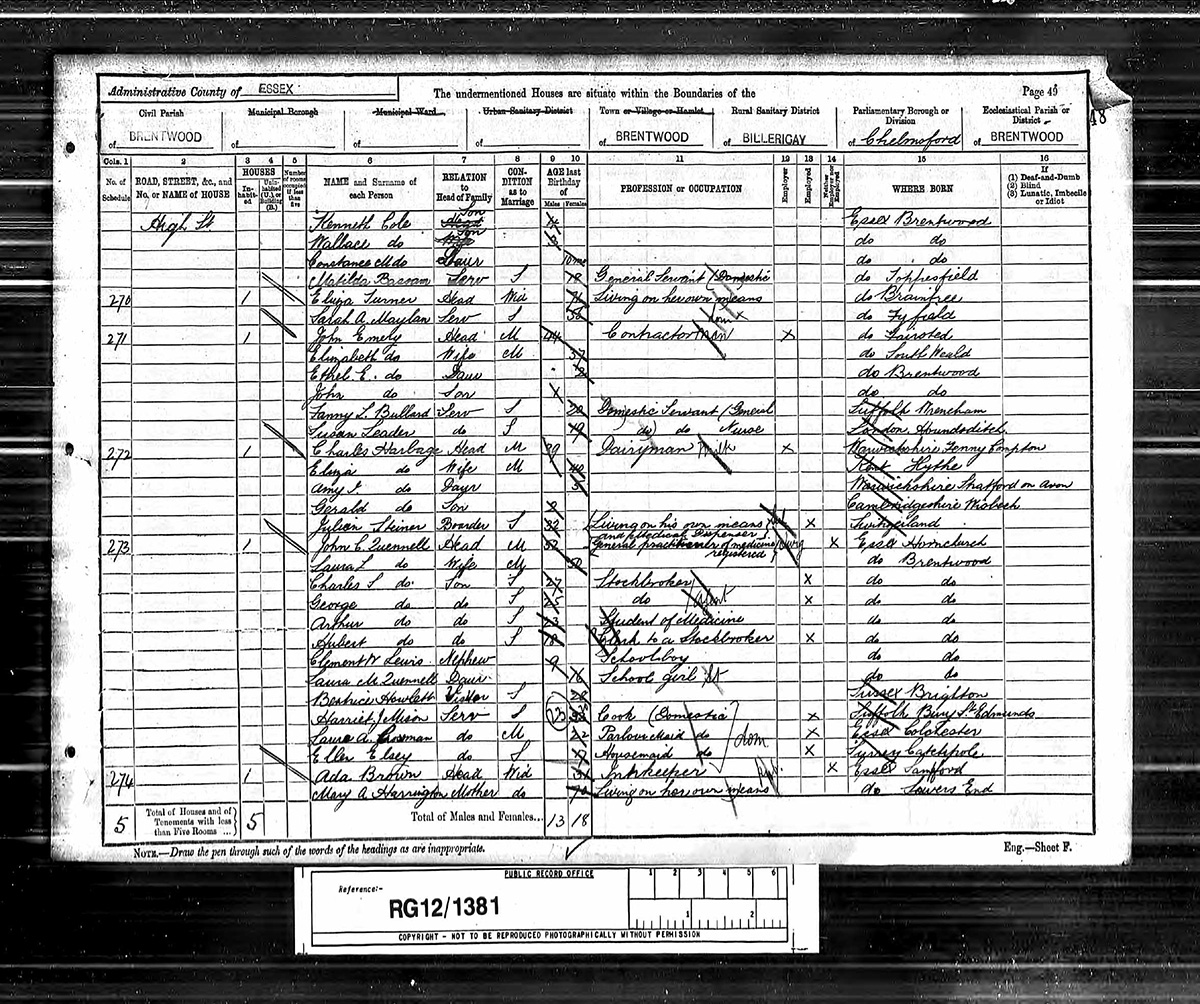 Administrative County of ESSEX The undermentioned Houses are situate within the Boundaries of the Page 49
48
Civil Parish Municipal Borough Municipal Ward Urban Sanitary District Town or Village or Hamlet Rural Sanitary District Parliamentary Borough or Division Ecclesiastical Parish or District
of BRENTWOOD of of of of BRENTWOOD of BILLERIGAY of Chelmsford of BRENTWOOD
Cols. 1 2 3 4 5 6 7 8 9 10 11 12 13 14 15 16
No. of Schedule ROAD, STREET, &c., and No. or NAME of HOUSE HOUSES Inhabited Uninhabited (U.) or Building (B.) Number of rooms occupied if less than five NAME and Surname of each Person RELATION to Head of Family CONDITION as to Marriage AGE last Birthday of Males Females PROFESSION or OCCUPATION Employer Employed Neither Employer nor Employed WHERE BORN If (1) Deaf-and-Dumb (2) Blind (3) Lunatic, Imbecile or Idiot
High St Kenneth Cole Head Son Essex Brentwood
Wallace do Wife Son do do
Constance M do Daur 10 mo do do
Matilda Bassom Serv S 18 General Servant (Domestic do Toppesfield
270 1 Eliza Turner Head Wid Living on her own means do Braintree
Sarah A. Maylan Serv S do Fyfield
271 1 John Emery Head M 44 Contractor X do Fairsted
Elizabeth do Wife M 37 do South Weald
Ethel E. do Daur do Brentwood
John do Son do do
Fanny L. Bullard Serv S 20 Domestic Servant (General Suffolk Wrencham
Susan Leader do S 19 do do Nurse London Houndsditch
272 1 Charles Harbage Head M 39 Dairyman Milk X Warwickshire Fenny Compton
Eliza do Wife M 40 Kent Hythe
Amy J. do Daur Warwickshire Stratford on Avon
Gerald do Son Cambridgeshire Wisbech
Julian Steiner Boarder S 32 Living on his own means X Switzerland
and Medical Dispenser
273 1 John C. Quennell Head M 52 General practitioner of medicine registered X Essex Hornchurch
Laura L do Wife M 50 do Brentwood
Charles S do Son S 27 Stockbroker X do do
George do do S 25 do X do do
Arthur do do S 23 Student of Medicine do do
Hubert do do S 18 Clerk to a Stockbroker X do do
Clement W Lewis Nephew 9 Schoolboy do do
Laura M. Quennell Daur 16 School girl do do
Beatrice Howlett Visitor S Sussex Brighton
Harriet Jimson Serv S Cook (Domestic X Suffolk Bury St Edmunds
Laura A. do M 22 Parlourmaid do Dom X Essex Colchester
Ellen Elsey do S Housemaid do X Surrey
274 1 Ada Brown Head Wid Innkeeper X Essex Samford
Mary A Harrington Mother do Living on her own means do Sewers End
5 Total of Houses and of Tenements with less than Five Rooms ... 5 Total of Males and Females... 13 18
NOTE.—Draw the pen through such of the words of the headings as are inappropriate. Eng.—Sheet F.
PUBLIC RECORD OFFICE 1 2 3 4 5 6
Reference:-
RG12/1381 1 2
COPYRIGHT - NOT TO BE REPRODUCED PHOTOGRAPHICALLY WITHOUT PERMISSION